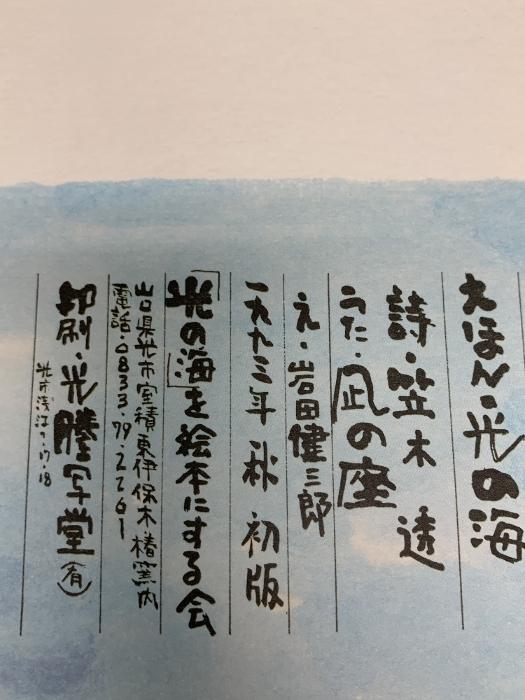 えほん・光の海
詩・笠木 透
うた・凪の座
え・岩田健三郎
一九九三年 秋 初版
「光の海」を絵本にする会
山口県光市室積東伊保木 椿窯内
電話・0833・79・2261
印刷・光謄写堂(有)
光市浅江7・17・18